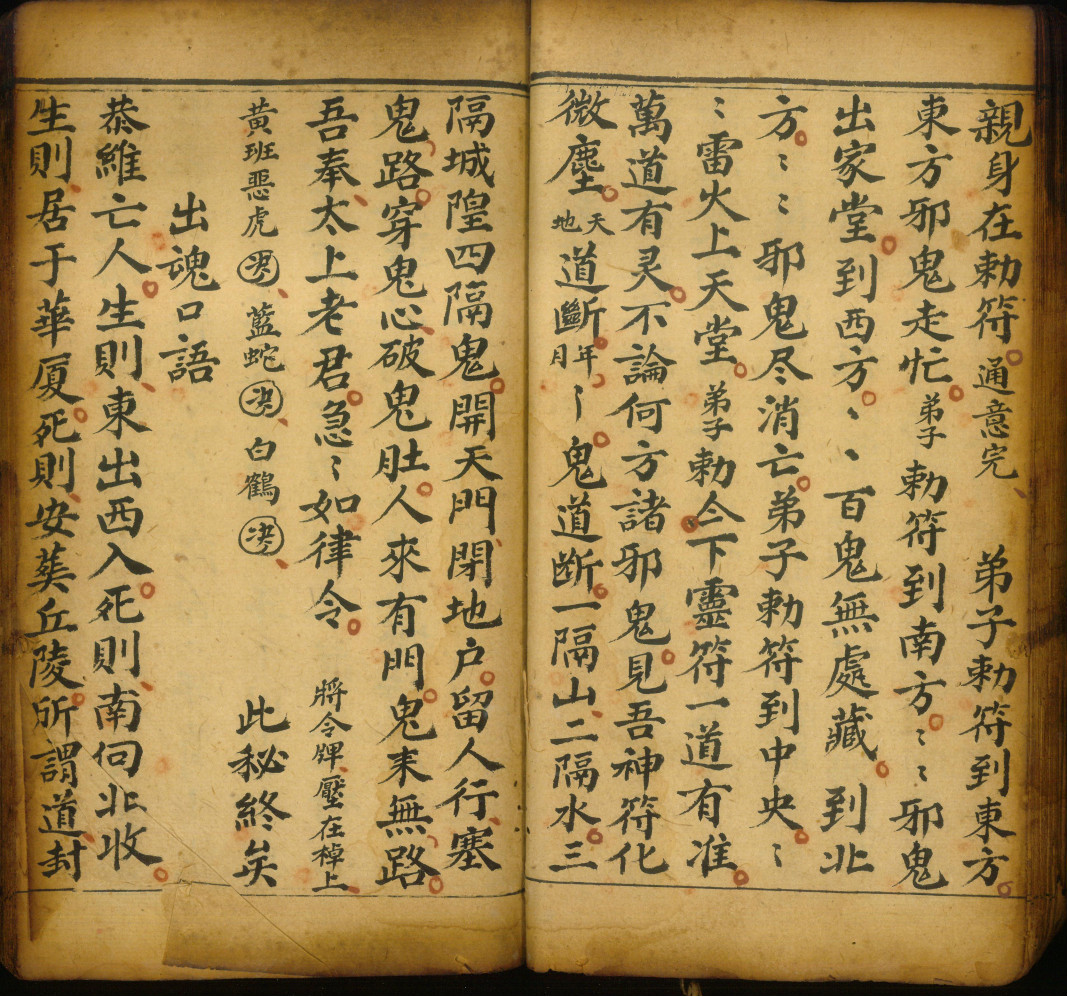 親身在勅符。通意完、弟子勅符到東方。
東方邪鬼走忙。弟子勅符到南方。〻〻邪鬼
出家堂。到西方。〻〻百鬼無處藏。到北
方。〻〻邪鬼尽消亡。弟子勅符到中央。〻
〻雷火上天堂。弟子勅令下靈符一道有准。
萬道有灵。不論何方諸邪鬼。見吾神符化
微塵。天地道斷。年月〻鬼道断。一隔山、二隔水。三
隔城隍四隔鬼。開天門、閉地户。留人行、塞
鬼路。穿鬼心、破鬼肚。人來有門。鬼来無路。
吾奉太上老君。急〻如律令。將令牌、壓在棹上、
黄班惡虎、藍蛇、白鶴、此秘終矣
出魂口語
恭維亡人。生則、東出西入。死則、南伺北收。
生則、居于華厦。死則、安葬丘陵。所謂道、封